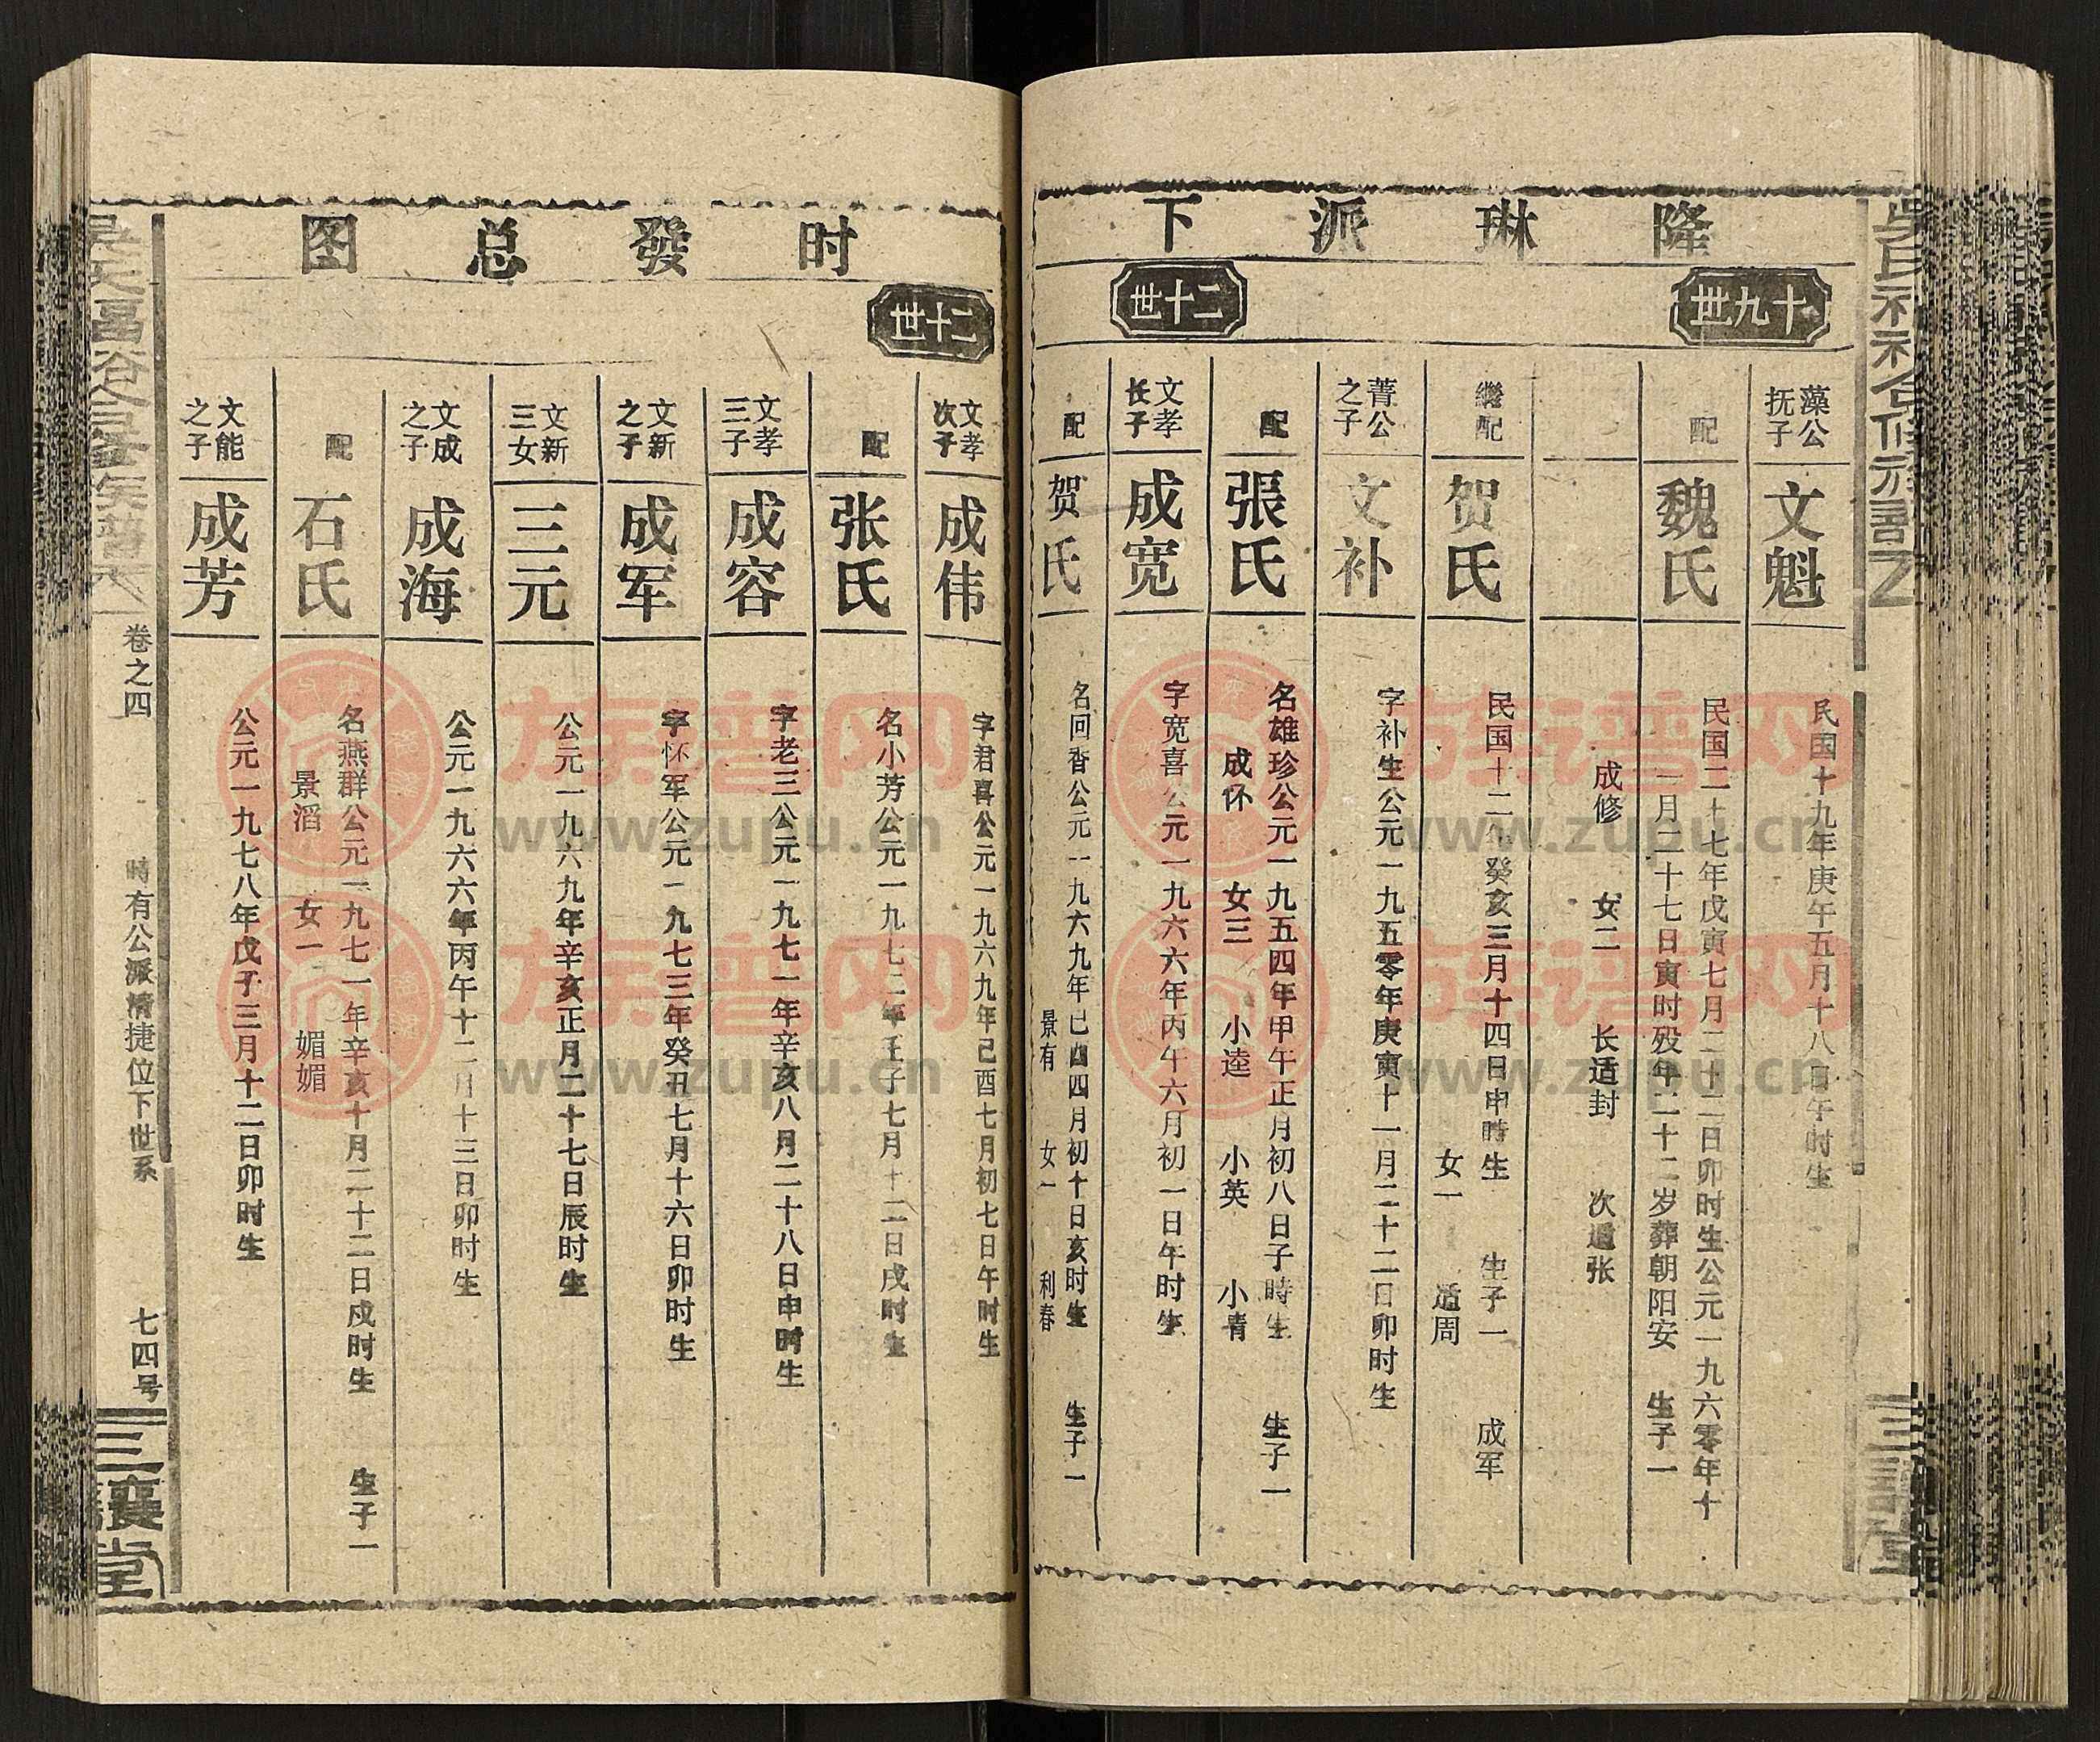 隆琳派下
十九世
藻公抚子
文魁
民国十九年庚午五月十八日午时生
配
魏氏
民国二十七年戊寅七月二十二日卯时生公元一九六零年十
一月二十七日寅时殁年二十二岁葬朝阳安 生子一
成修 女二 长适封 次适张
继配
贺氏
民国十二年癸亥三月十四日申時生 生子一 成军
女一 适周
菁公之子
文补
字补生公元一九五零年庚寅十一月二十二日卯时生
配
張氏
名雄珍公元一九五四年甲午正月初八日子時生 生子一
成怀 女三 小逵 小英 小青
二十世
文孝长子
成宽
字宽喜公元一九六六年丙午六月初一日午时生
配
贺氏
名回香公元一九六九年已酉四月初十日亥时生 生子一
景有 女一 利春
时發总图
二十世
文孝次子
成伟
字君喜公元一九六九年己酉七月初七日午时生
配
张氏
名小芳公元一九七二年壬子七月十二日戌时生
文孝三子
成容
字老三公元一九七一年辛亥八月二十八日申时生
文新之子
成军
字怀军公元一九七三年癸丑七月十六日卯时生
文新三女
三元
公元一九六九年辛亥正月二十七日辰时生
文成之子
成海
公元一九六六年丙午十二月十三日卯时生
配
石氏
名燕群公元一九七一年辛亥十月二十二日戌时生 生子一
景滔 女一 媚媚
文能之子
成芳
公元一九七八年戊子三月十二日卯时生
卷之四
時有公派精捷位下世系
七四号
三讓堂
族谱网
www.zupu.cn
族谱网
www.zupu.cn
族谱网
www.zupu.cn
族谱网
www.zupu.cn